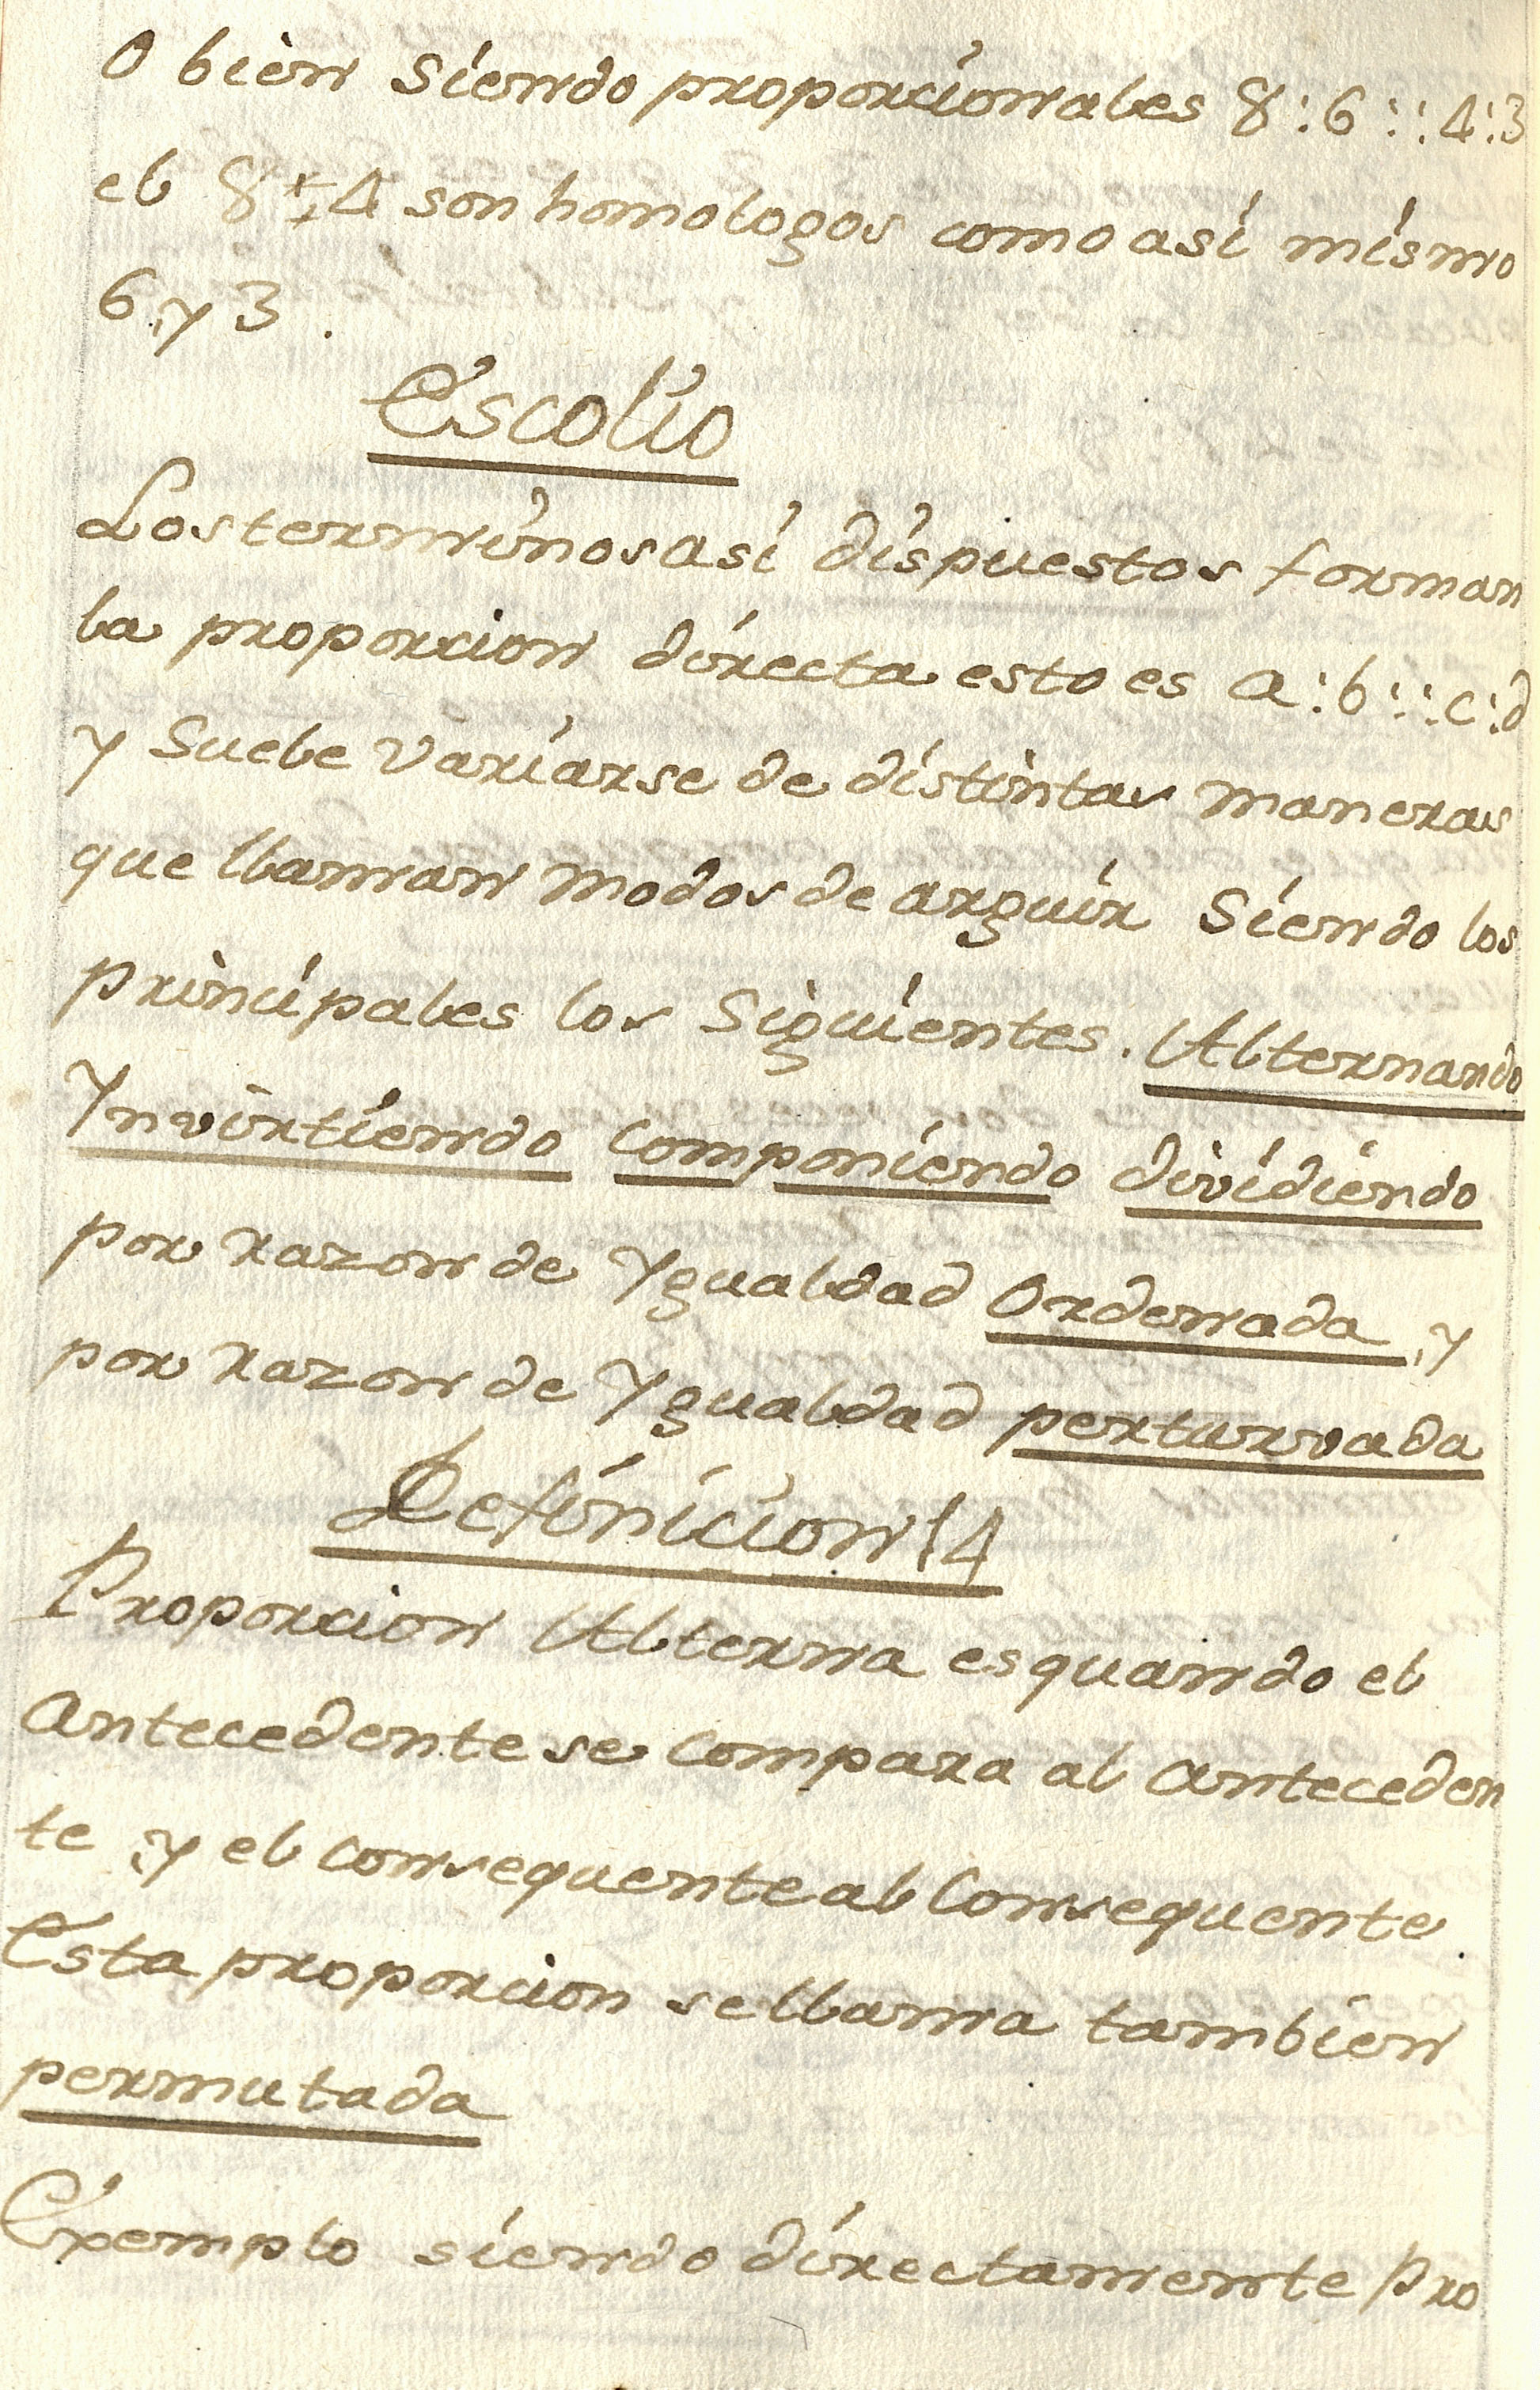 O bien siendo proporcionales 8:6::4:3
el 8 y 4 son homologos como asi mismo
6 y 3.
Escolio
Los terminos asi dispuestos forman
la proporcion directa esto es a:b::c:d
y Suele variarse de distintas maneras
que llaman modos de arguir Siendo los
principales los Siguientes. Alternando
Ynvirtiendo componiendo dividiendo
por razon de Ygualdad Ordenada y
por razon de Ygualdad perturvada
Definicion 14
Proporcion Alterna es quando el
antecedente se compara al anteceden
te y el consequente al Consequente.
Esta proporcion se llama tambien
permutada
Exemplo siendo directamente pro